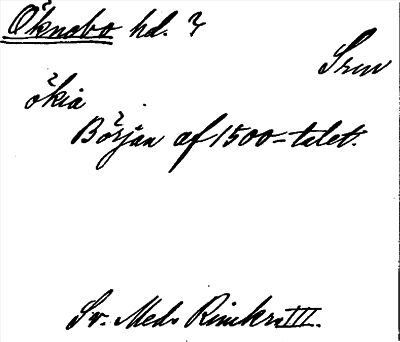 Öknebo hd. ?
Srm
ökia
Början af 1500-talet.
Sv. Med. Rimkr. III.